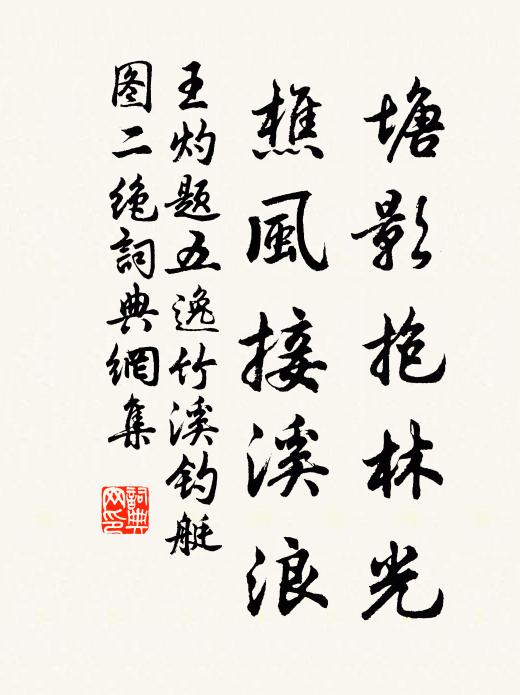 塘影抱林光
樵風接溪浪
王灼题五逸竹溪钓艇
图二绝詞典網集
詞典网印